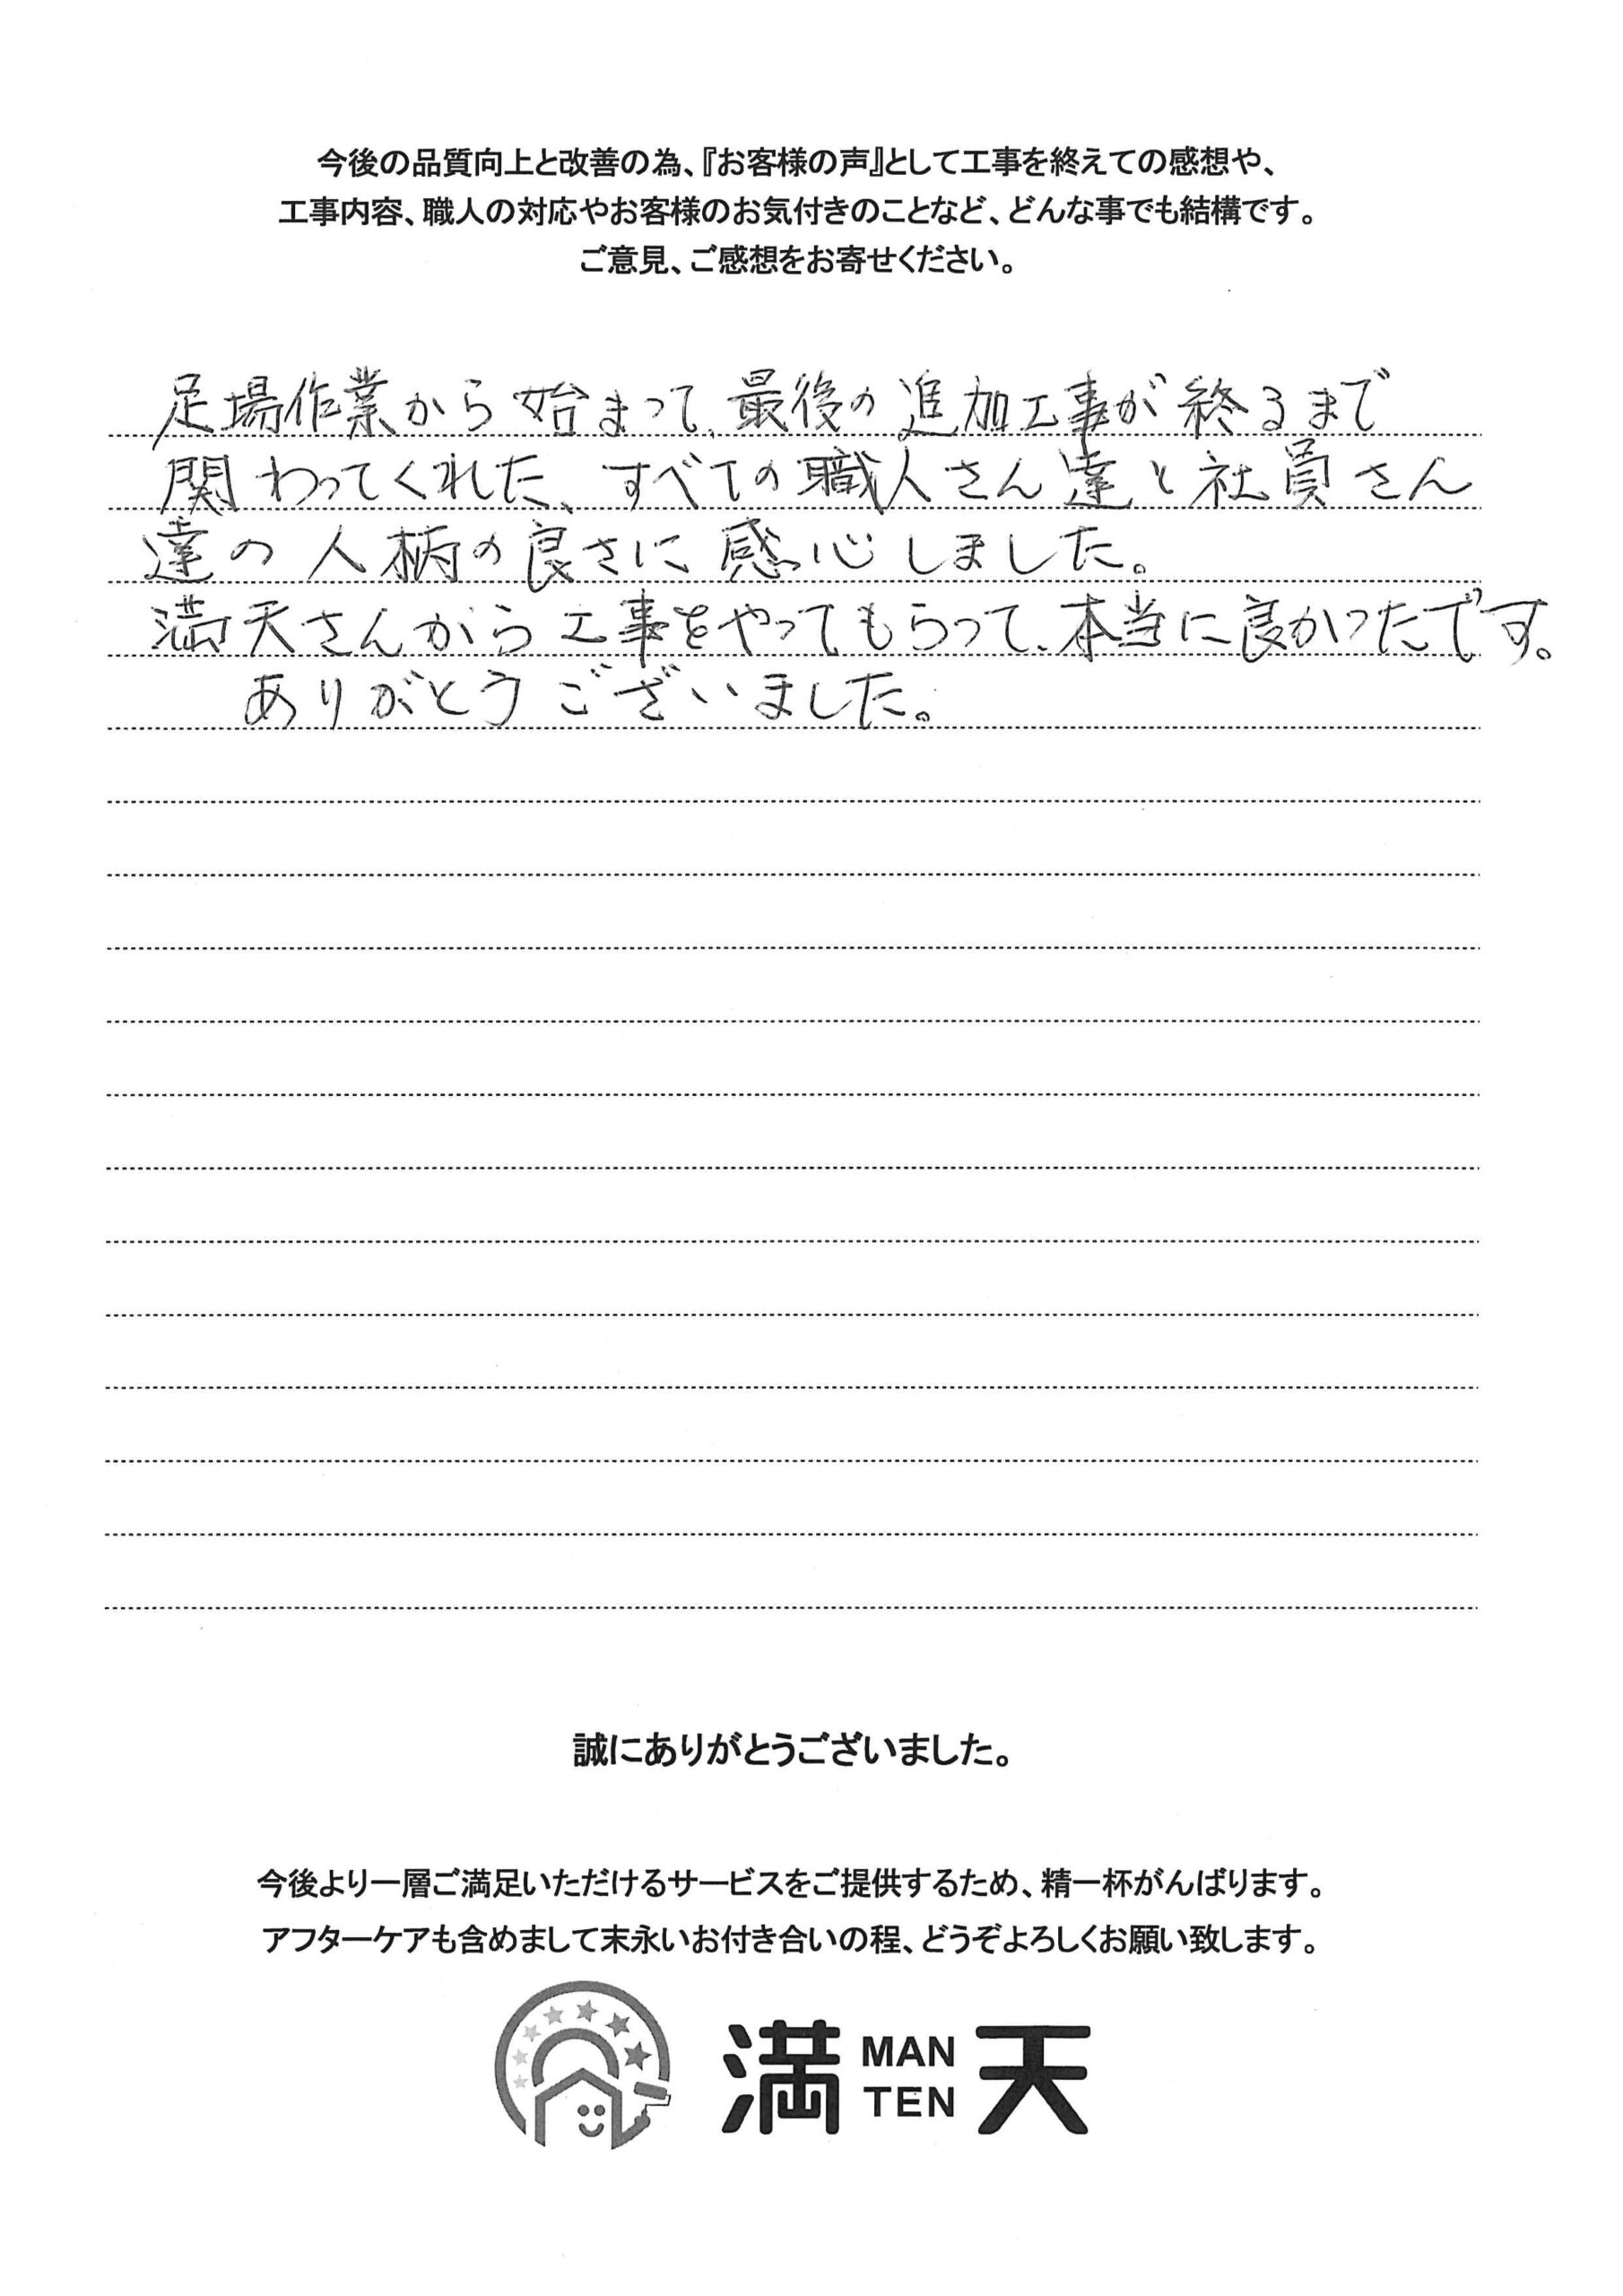 今後の品質向上と改善の為、『お客様の声』として工事を終えての感想や、
工事内容、職人の対応やお客様のお気付きのことなど、どんな事でも結構です。
ご意見、ご感想をお寄せください。
足場作業から始まって、最後の追加工事が終るまで
関わってくれた、すべての職人さん達と社員さん
達の人柄の良さに感心しました。
満天さんから工事をやってもらって、本当に良かったです。
ありがとうございました。
誠にありがとうございました。
今後より一層ご満足いただけるサービスをご提供するため、精一杯がんばります。
アフターケアも含めまして末永いお付き合いの程、どうぞよろしくお願い致します。
満 MAN TEN 天